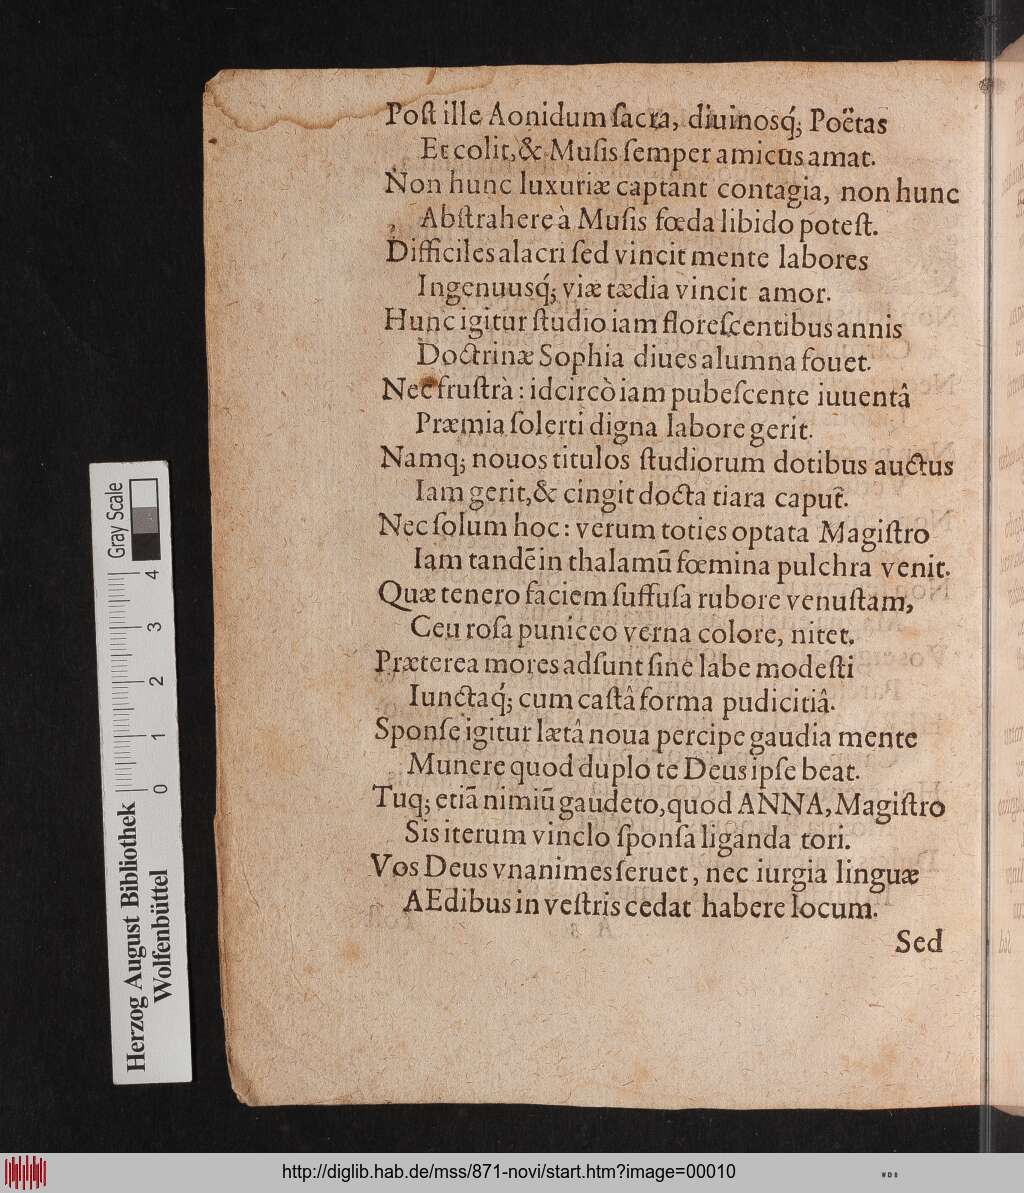 Poſt ille Aonidum ſacra, diuinosq́; Poëtas
Et colit, & Muſis ſemper amicus amat.
Non hunc luxuriæ captant contagia, non hunc
Abſtrahere à Muſis fœda libido poteſt.
Difficiles alacri ſed vincit mente labores
Ingenuusq́; viæ tædia vincit amor.
Hunc igitur ſtudio iam floreſcentibus annis
Doctrinæ Sophia diues alumna fouet.
Nec fruſtrà: idcircò iam pubeſcente iuuentâ
Præmia ſolerti digna labore gerit.
Namq; nouos titulos ſtudiorum dotibus auctus
Iam gerit, & cingit docta tiara caput.
Nec ſolum hoc: verum toties optata Magiſtro
Iam tandẽ in thalamũ fœmina pulchra venit.
Quæ tenero faciem ſuffuſa rubore venuſtam,
Ceu roſa puniceo verna colore, nitet.
Præterea mores adſunt ſine labe modeſti
Iunctaq́; cum caſtâ forma pudicitiâ.
Sponſe igitur lætâ noua percipe gaudia mente
Munere quod duplo te Deus ipſe beat.
Tuq; etiã nimiũ gaudeto, quod ANNA, Magiſtro
Sis iterum vinclo ſponſa liganda tori.
Vos Deus vnanimes ſeruet, nec iurgia linguæ
AEdibus in veſtris cedat habere locum.
Sed
Gray Scale
4
3
2
1
0
Herzog August Bibliothek
Wolfenbüttel
http://diglib.hab.de/mss/871-novi/start.htm?image=00010